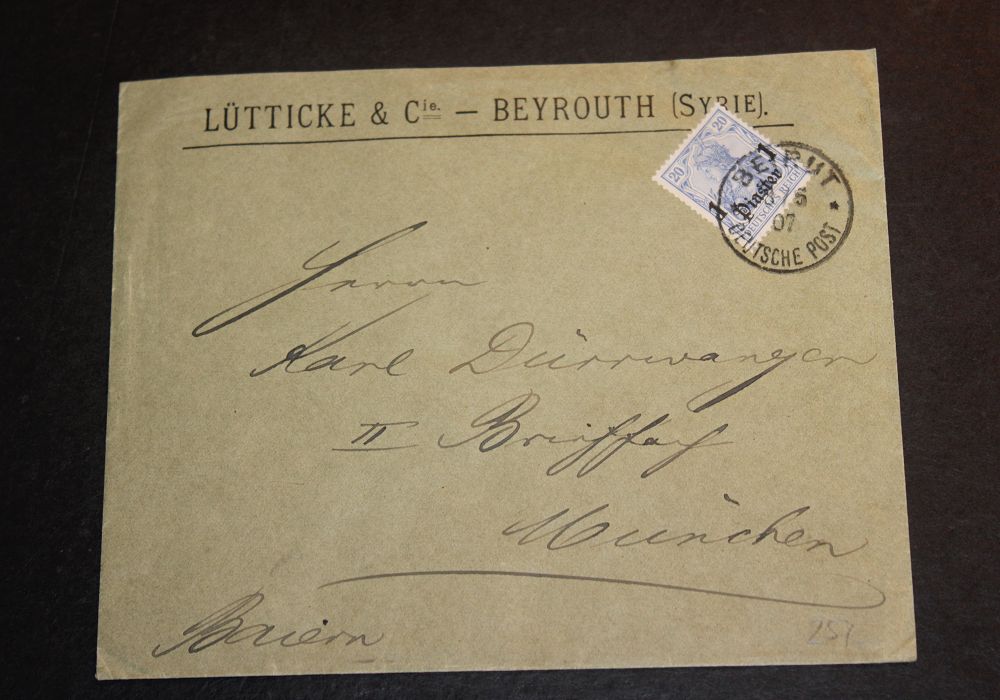 LÜTTICKE & Cie. — BEYROUTH (SYRIE).
20 20
1 Piaster 1
DEUTSCHES REICH
BEIRUT
07
* DEUTSCHE POST *
Herrn
Karl Dürrwangen
II Brieffach
München
Baiern
257